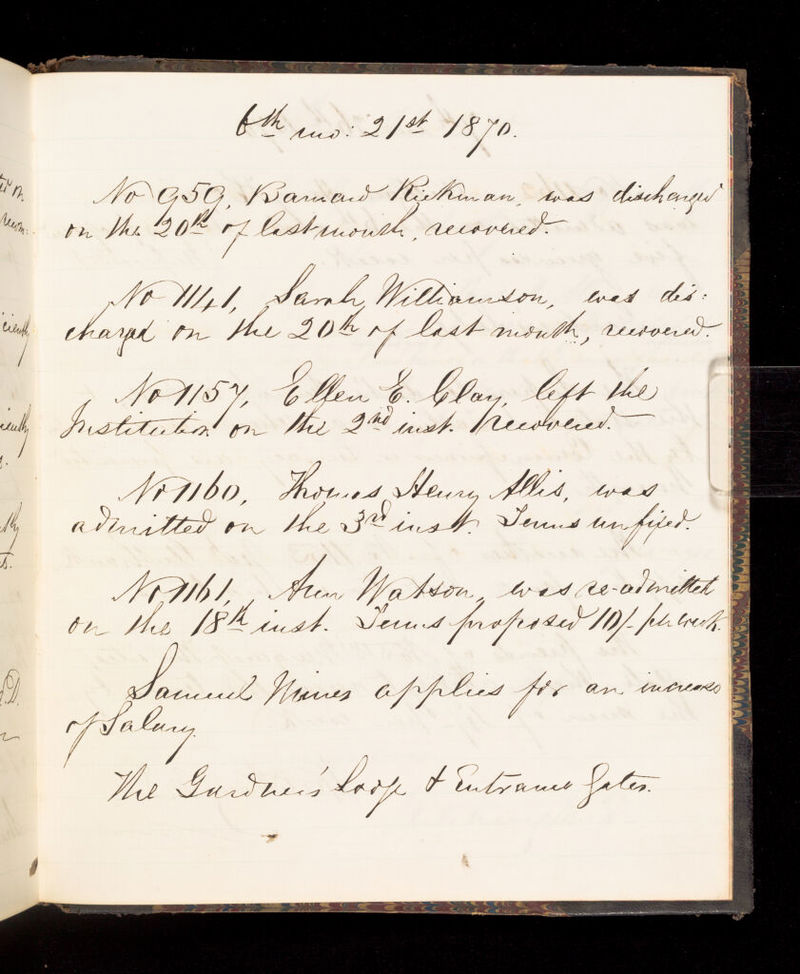 6th mo: 21st 1870.
No 959, Barnard Rickman, was discharged
on the 20th of last month, recovered.
No 1141, Sarah Williamson, was dis:
charged on the 20th of last month, recovered.
No 1157, Ellen E. Clay, left the
Institution on the 2nd inst. recovered.
No 1160, Thomas Henry Allis, was
admitted on the 3rd inst. Terms unfixed.
No 1161, Ann Watson, was re-admitted
on the 18th inst. Terms proposed 10/- per week.
Samuel applies for an increase
of Salary.
The Gardner's Lodge & Entrance Gates.